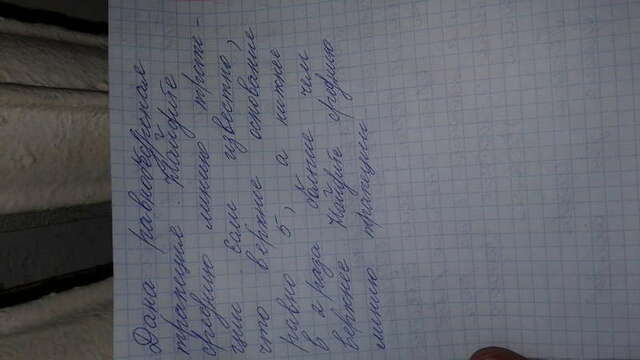 Дана равнобедреная
трапеция. Найдите
среднию линию трапе-
ции если известно,
что верхнее основание
равно 5, а нижнее
в 2 раза больше чем
верхнее Найдите среднию
линию трапеции